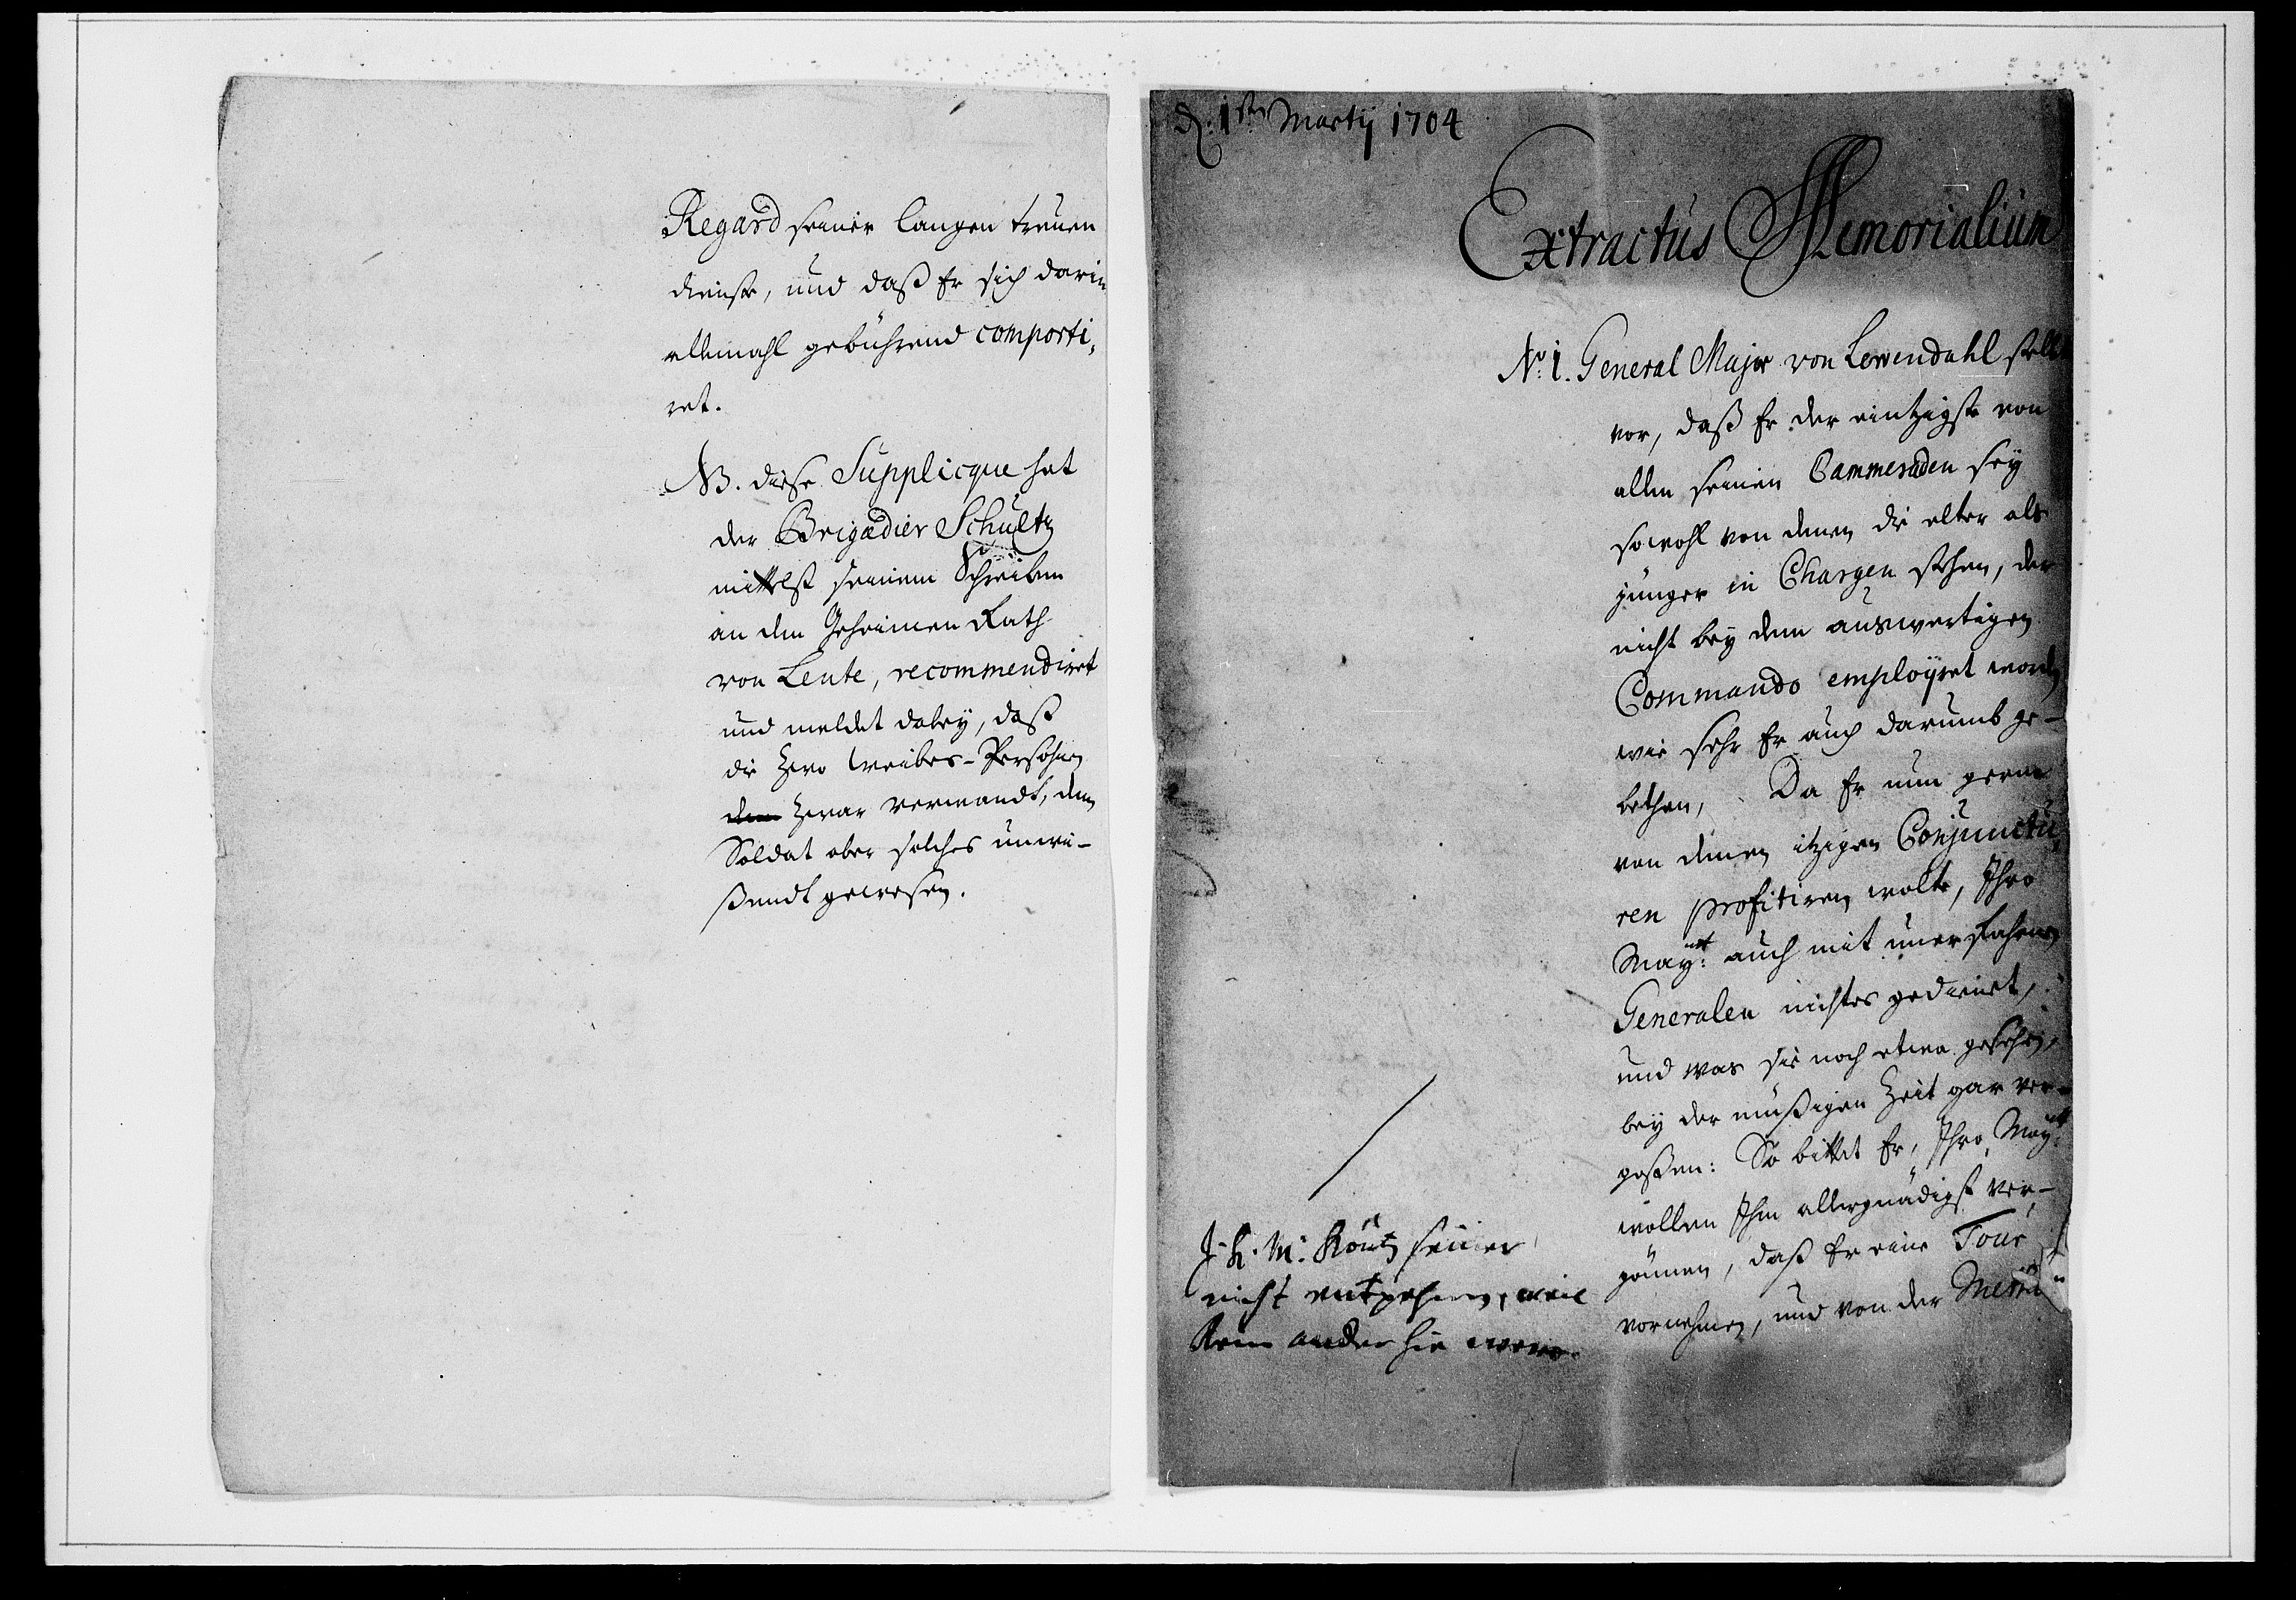 Regard seiner langen treuen
dienste, und daß Er sich darin
allemahl gebührend comporti,
ret.
NB. diese Supplicque hat
der Brigadier Schultz
mittelst seinem Schreiben
an den Geheimen Rath
von Lente, recommendiret
und meldet dabey, daß
die zwo Weibes-Persohnen
den zwar verwandt, dem
Soldat aber solches unwi-
ßendt gewesen.
d. 1sten Martij 1704
Extractus Memorialium
No 1. General Major von Lewendahl stelt
vor, daß Er der eintzigste von
allen seinen Cammeraden sey
sowohl von denen die elter als
jünger in Chargen stehen, der
nicht bey dem auswertigen
Commando employret worden
wie sehr Er auch darumb ge-
bethen, Da Er nun gerne
von denen itzigen Conjunctu,
ren profitiren wolte, Ihro
Mayt. auch mit unerfahrnen
Generalen nichtes gedienet,
und was sie noch etwa gesehen,
bey der müßigen Zeit gar ver-
geßen: So bittet Er, Ihro Mayt.
wollen Ihm allergnädigst ver-
gönnen, daß Er eine Tour
vornehmen, und von der
I. K. M. Könt seiner
nicht entgehen, weil
kein ander hie were.